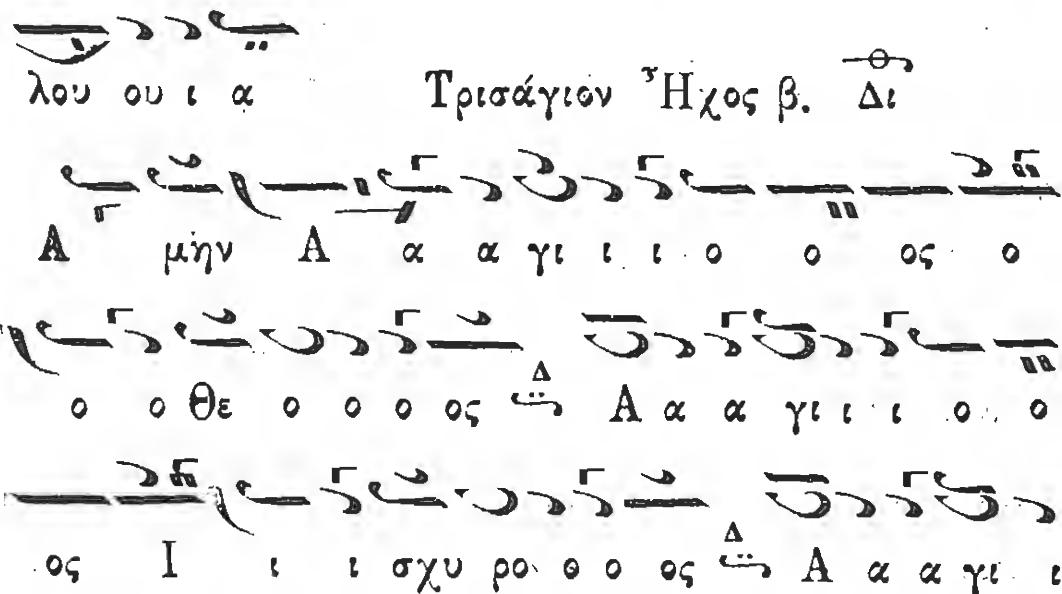 λου ου ι α Τρισάγιον Ἦχος β. Δι
Α μὴν Α α α γι ι ι ο ο ος ο
ο ο Θε ο ο ο ος Δ Α α α γι ι ι ο ο
ος Ι ι ι σχυ ρο ο ο ος Δ Α α α γι ι